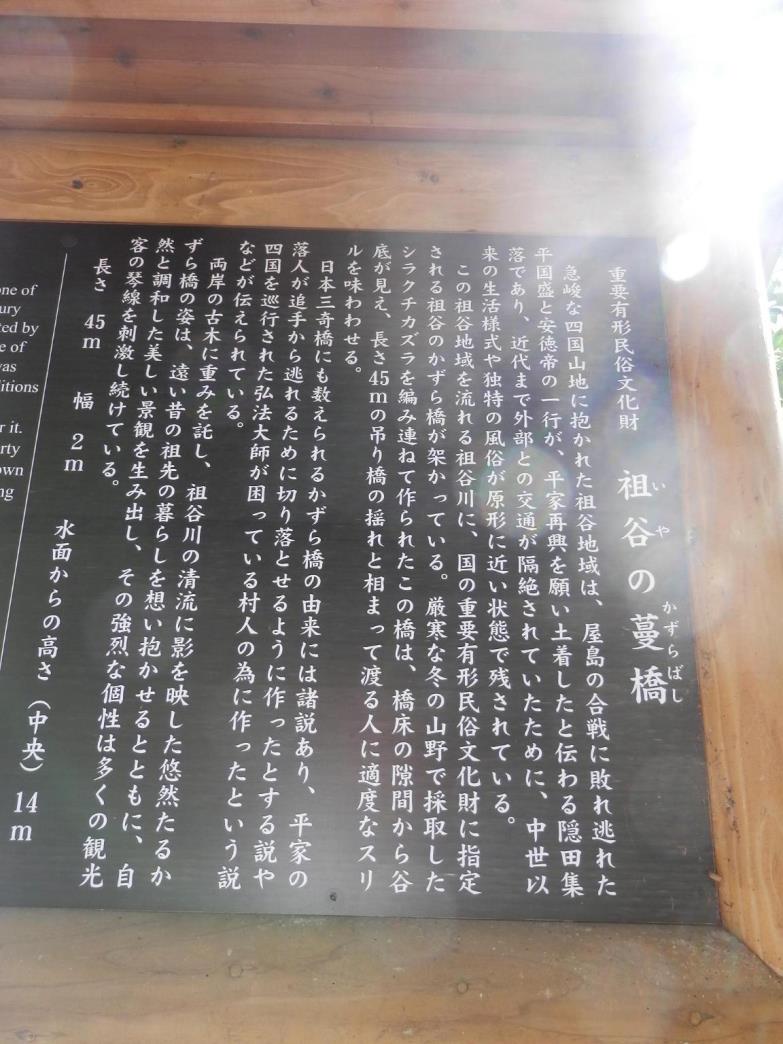 重要有形民俗文化財 祖谷の蔓橋
いや
かずらばし
急峻な四国山地に抱かれた祖谷地域は、屋島の合戦に敗れ逃れた
平国盛と安徳帝の一行が、平家再興を願い土着したと伝わる隠田集
落であり、近代まで外部との交通が隔絶されていたために、中世以
来の生活様式や独特の風俗が原形に近い状態で残されている。
この祖谷地域を流れる祖谷川に、国の重要有形民俗文化財に指定
される祖谷のかずら橋が架かっている。厳寒な冬の山野で採取した
シラクチカズラを編み連ねて作られたこの橋は、橋床の隙間から谷
底が見え、長さ45mの吊り橋の揺れと相まって渡る人に適度なスリ
ルを味わわせる。
日本三奇橋にも数えられるかずら橋の由来には諸説あり、平家の
落人が追手から逃れるために切り落とせるように作ったとする説や
四国を巡行された弘法大師が困っている村人の為に作ったという説
などが伝えられている。
両岸の古木に重みを託し、祖谷川の清流に影を映した悠然たるか
ずら橋の姿は、遠い昔の祖先の暮らしを想い抱かせるとともに、自
然と調和した美しい景観を生み出し、その強烈な個性は多くの観光
客の琴線を刺激し続けている。
長さ 45m 幅 2m 水面からの高さ（中央）14m
one of
ury
ted by
e of
was
ditions
r it.
rty
own
ng